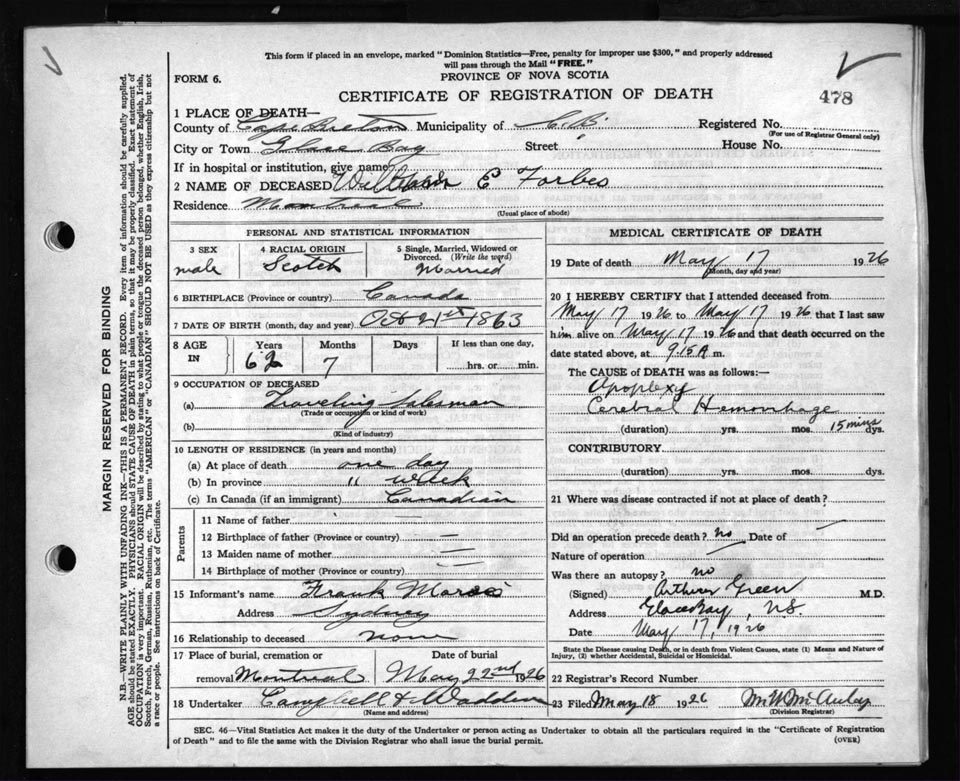 This form if placed in an envelope, marked "Dominion Statistics—Free, penalty for improper use $300," and properly addressed
will pass through the Mail "FREE."
FORM 6.
PROVINCE OF NOVA SCOTIA
CERTIFICATE OF REGISTRATION OF DEATH
478
1 PLACE OF DEATH—
County of Cape Breton Municipality of C.B. Registered No.
(For use of Registrar General only)
City or Town Glace Bay Street House No.
If in hospital or institution, give name
2 NAME OF DECEASED William E Forbes
Residence Montreal
(Usual place of abode)
PERSONAL AND STATISTICAL INFORMATION
3 SEX male
4 RACIAL ORIGIN Scotch
5 Single, Married, Widowed or
Divorced. (Write the word)
Married
6 BIRTHPLACE (Province or country) Canada
7 DATE OF BIRTH (month, day and year) Oct 21st 1863
8 AGE IN
Years Months Days If less than one day,
62 7 hrs. or min.
9 OCCUPATION OF DECEASED
(a) Traveling Salesman
(Trade or occupation or kind of work)
(b)
(Kind of industry)
10 LENGTH OF RESIDENCE (in years and months)
(a) At place of death one day
(b) In province " week
(c) In Canada (if an immigrant) Canadian
Parents
11 Name of father
12 Birthplace of father (Province or country) —
13 Maiden name of mother —
14 Birthplace of mother (Province or country)
15 Informant's name Frank
Address Sydney
16 Relationship to deceased none
17 Place of burial, cremation or Date of burial
removal Montreal May 22nd 1926
18 Undertaker Campbell & Wadden
(Name and address)
MEDICAL CERTIFICATE OF DEATH
19 Date of death May 17 1926
(Month, day and year)
20 I HEREBY CERTIFY that I attended deceased from
May 17 1926 to May 17 1926 that I last saw
him alive on May 17 1926 and that death occurred on
date stated above, at 9.15 A m.
The CAUSE of DEATH was as follows:—
Apoplexy
Cerebral Hemorrhage
(duration) yrs. mos. 15 mins dys.
CONTRIBUTORY
(duration) yrs. mos. dys.
21 Where was disease contracted if not at place of death?
Did an operation precede death? no Date of —
Nature of operation —
Was there an autopsy? no
(Signed) Arthur Green M.D.
Address Glace Bay, N.S.
Date May 17, 1926
State the Disease causing Death, or in death from Violent Causes, state (1) Means and Nature of
Injury, (2) whether Accidental, Suicidal or Homicidal.
22 Registrar's Record Number
23 Filed May 18 1926
(Division Registrar)
SEC. 46—Vital Statistics Act makes it the duty of the Undertaker or person acting as Undertaker to obtain all the particulars required in the "Certificate of Registration
of Death" and to file the same with the Division Registrar who shall issue the burial permit. (OVER)
MARGIN RESERVED FOR BINDING
N.B.—WRITE PLAINLY WITH UNFADING INK—THIS IS A PERMANENT RECORD. Every item of information should be carefully supplied.
AGE should be stated EXACTLY. PHYSICIANS should STATE CAUSE OF DEATH in plain terms, so that it may be properly classified. Exact statement of
OCCUPATION is very important. RACIAL ORIGIN will be described by stating to what people or tongue the deceased person belonged, whether English, Irish,
Scotch, French, German, Russian, Ruthenian, etc. The terms "AMERICAN" or "CANADIAN" SHOULD NOT BE USED as they express citizenship but not
a race or people. See instructions on back of Certificate.